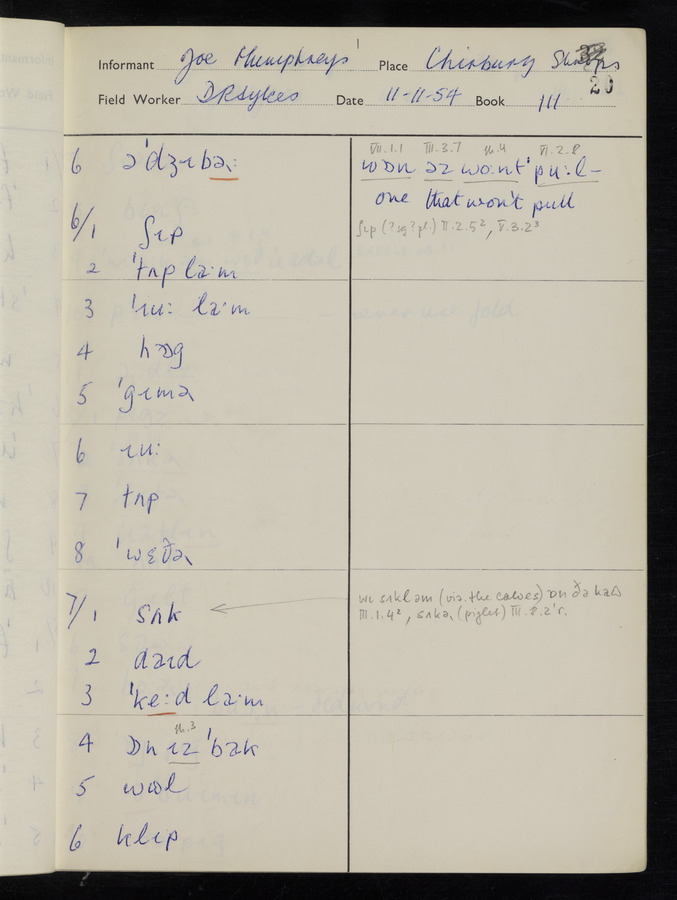 Informant Joe Humphreys Place Chirbury Shrops
Field Worker DRSykes Date 11-11-54 Book III
20
VII.1.1 III.3.7 VI.2.8
6 əˈdʒɪbəɹː
wɒn əz woːnt ˈpuːl –
one that won't pull
6/1 ʃɪp
ʃɪp (? sg ? pl.) II.2.5², V.3.2³
2 ˈtʌp laːm
3 ˈɹuː laːm
4 hɒg
5 ˈgɪməɹ
6 ɹuː
7 tʌp
8 ˈwɛðəɹ
7/1 sʌk
wi sʌkl əm (viz. the calves) ɒn ðə kaʊ
III.1.4², sʌkəɹ (piglet) III.8.2'r.
2 daɪd
3 ˈkeːd laːm
4 ɒn ɪz ˈbak
5 wʊl
6 klɪp